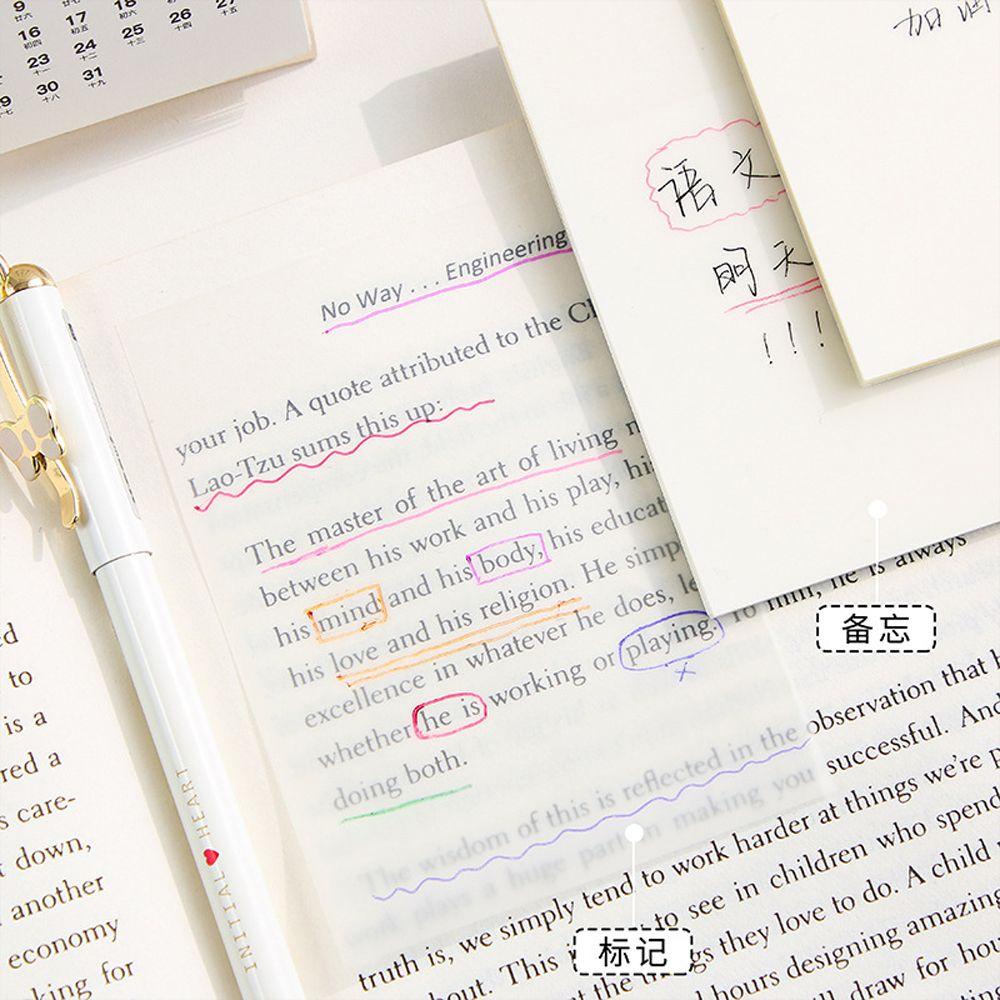 9
18
廿六
十五
16
17
初四
初五
25
26
23
24
十一
十二
十三
十四
30
31
十八
十九
语文
明天
!!!
No Way . . . Engineering
your job. A quote attributed to the
Lao-Tzu sums this up:
The master of the art of living
between his work and his play,
his mind and his body, his
his love and his religion. He
excellence in whatever he does,
whether he is working or playing. To him, he is always
doing both.
The wisdom of this is reflected in the observation that
plays a huge part in making you successful. And
truth is, we simply tend to work harder at things we're
This to see in children who spend
at the things they love to do. A child
hours designing amazing
draw for
备忘
标记
INITIAL HEART
to
is a
care-
down,
another
economy
for